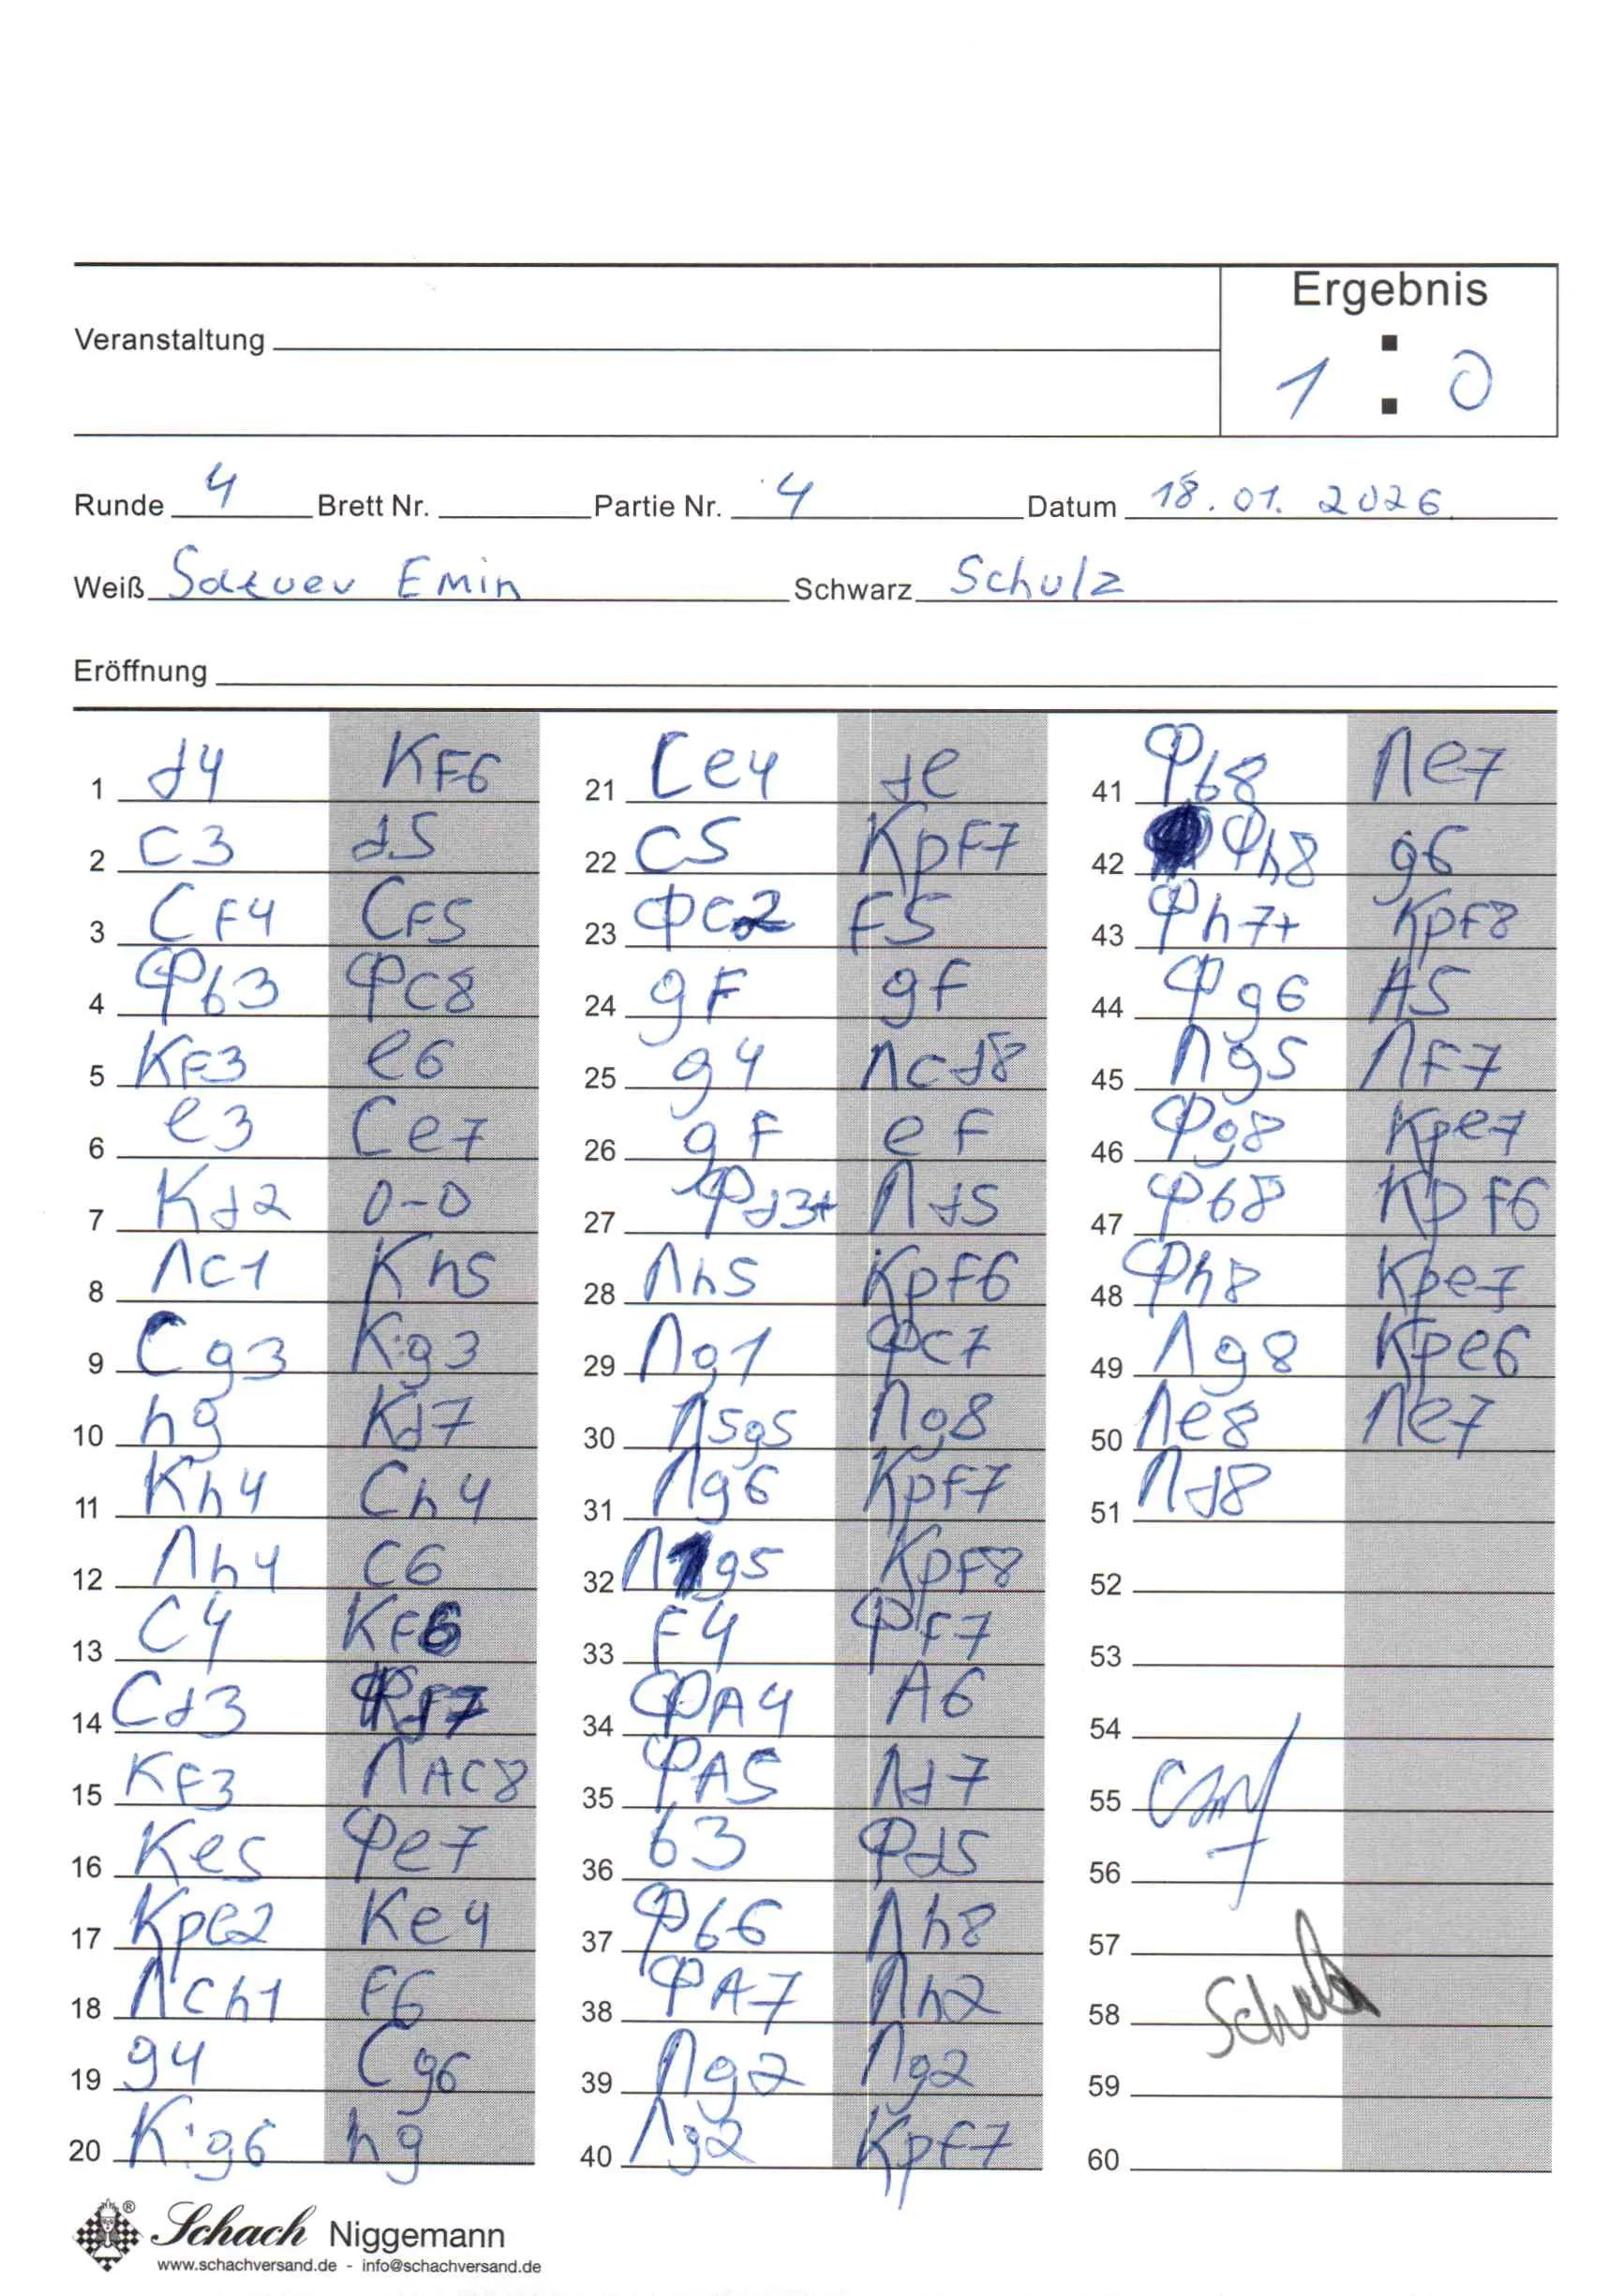 Ergebnis
Veranstaltung
1 : 0
Runde 4 Brett Nr. Partie Nr. 4 Datum 18.01.2026
Weiß Satuev Emin Schwarz Schulz
Eröffnung
1 d4 Кf6
2 c3 d5
3 Сf4 Сf5
4 Фb3 Фc8
5 Кf3 e6
6 e3 Сe7
7 Кd2 0-0
8 Лc1 Кh5
9 Сg3 К:g3
10 hg Кd7
11 Кh4 Сh4
12 Лh4 c6
13 c4 Кf6
14 Сd3
15 Кf3 ЛAc8
16 Кe5 Фe7
17 Крe2 Кe4
18 Лch1 F6
19 g4 Сg6
20 К:g6 hg
21 Сe4 de
22 c5 КрF7
23 Фc2 F5
24 gF gf
25 g4 Лcd8
26 gF eF
27 Фd3+ Лd5
28 Лh5 КрF6
29 Лg1 Фc7
30 Л5g5 Лg8
31 Лg6 Крf7
32 Л1g5 КрF8
33 F4 Фf7
34 ФA4 A6
35 ФA5 Лd7
36 b3 Фd5
37 Фb6 Лh8
38 ФA7 Лh2
39 Лg2 Лg2
40 Лg2 Крf7
41 Фb8 Лe7
42 Фh8 g6
43 Фh7+ Крf8
44 Фg6 A5
45 Лg5 Лf7
46 Фg8 Крe7
47 Фb8 Крf6
48 Фh8 Крe7
49 Лg8 Крe6
50 Лe8 Лe7
51 Лd8
52
53
54
55
56
57
58 Schulz
59
60
Schach Niggemann
www.schachversand.de - info@schachversand.de